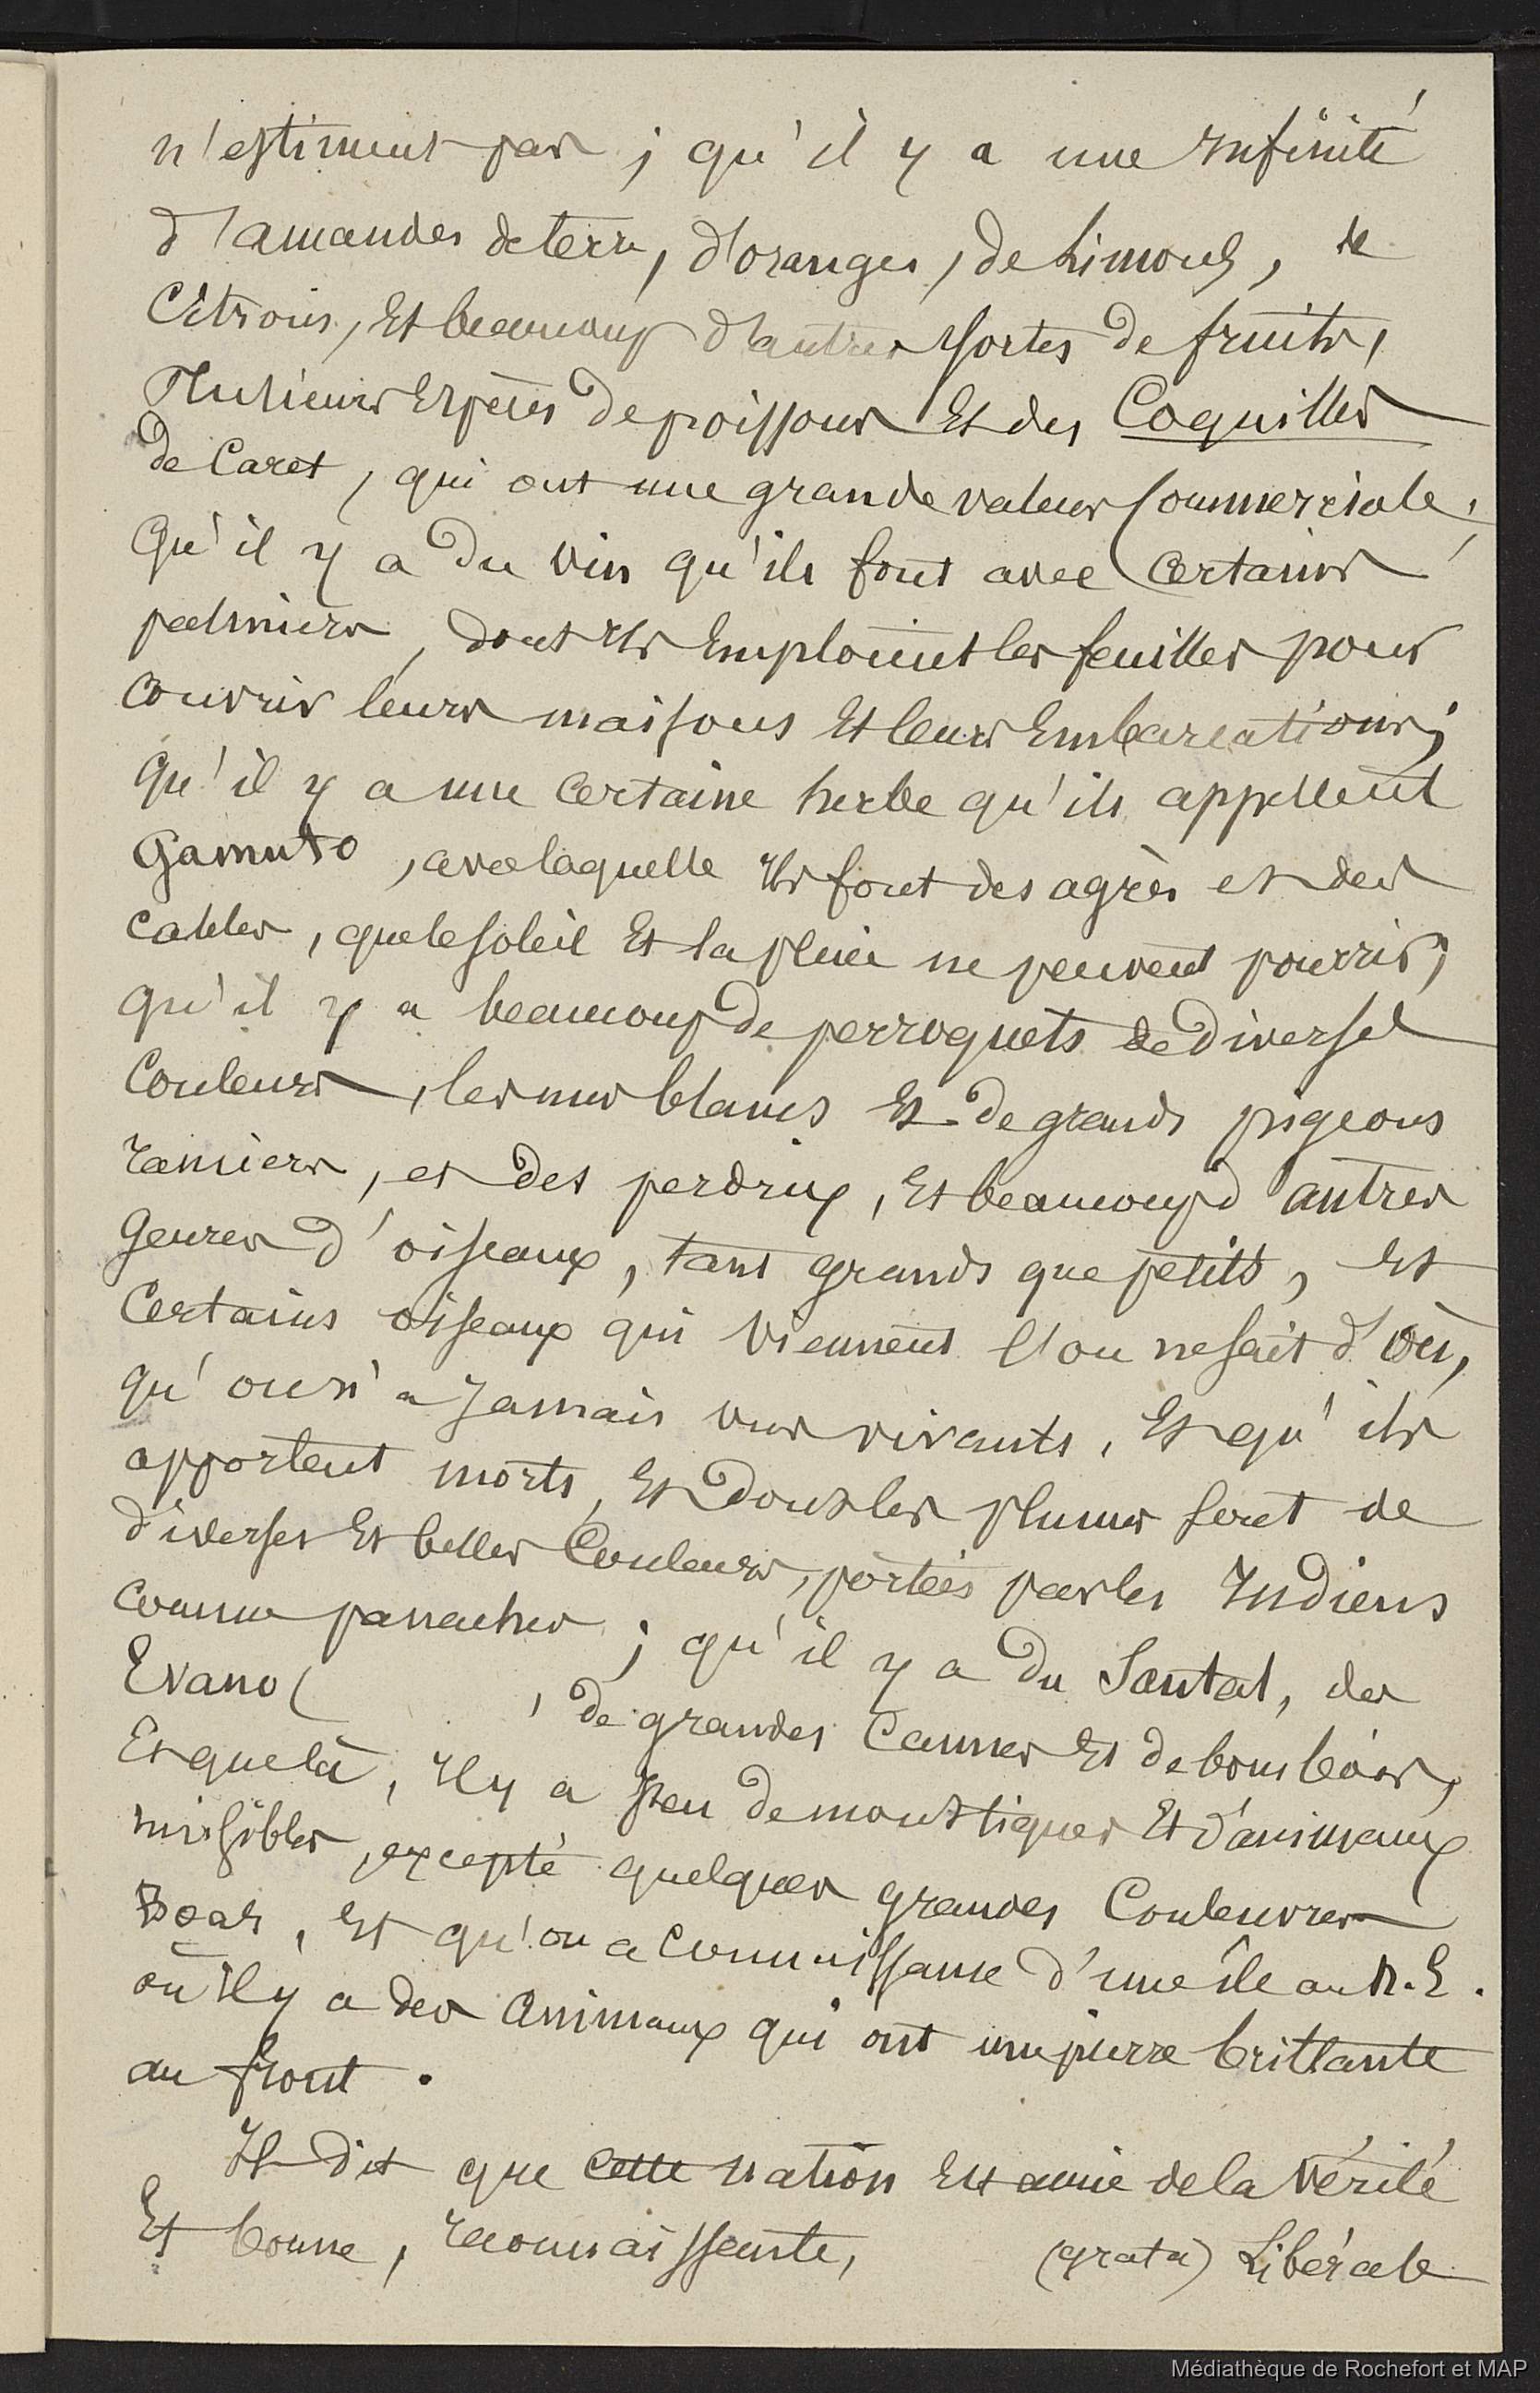 n'estiment pas ; qu'il y a une Infinité
d'amandes de terre, d'oranges, de Limons, de
Citrons, Et beaucoup d'autres sortes de fruits,
Plusieurs Espèces de poissons Et des Coquilles
de Caret, qui ont une grande valeur Commerciale ;
Qu'il y a du vin qu'ils font avec certains
palmiers, dont Ils Emploient les feuilles pour
couvrir leurs maisons Et leurs Embarcations ;
Qu'il y a une certaine herbe qu'ils appellent
Gamuto, avec laquelle Ils font des agrès et des
cables, que le soleil Et la pluie ne peuvent pourrir ;
qu'il y a beaucoup de perroquets de diverses
Couleurs, les uns blancs Et de grands pigeons
ramiers, et des perdrix, Et beaucoup d'autres
Genres d'oiseaux, tant grands que petits, Et
Certains oiseaux qui viennent l'on ne sait d'où,
qu'on n'a Jamais vus vivants, Et qu'ils
apportent morts, Et dont les plumes sont de
diverses Et belles Couleurs, portées par les Indiens
comme panaches ; qu'il y a du Santal, des
Evano ( , de grandes Cannes Et de bombòas,
Et que là, Il y a peu de moustiques Et d'animaux
nuisibles, excepté quelques grandes Couleuvres
Boas, Et qu'on a connaissance d'une île au N.E.
où Il y a des Animaux qui ont une pierre brillante
au front.
Il dit que cette nation Est amie de la Vérité
Et bonne, reconnaissante, (grata) Libérale
Médiathèque de Rochefort et MAP